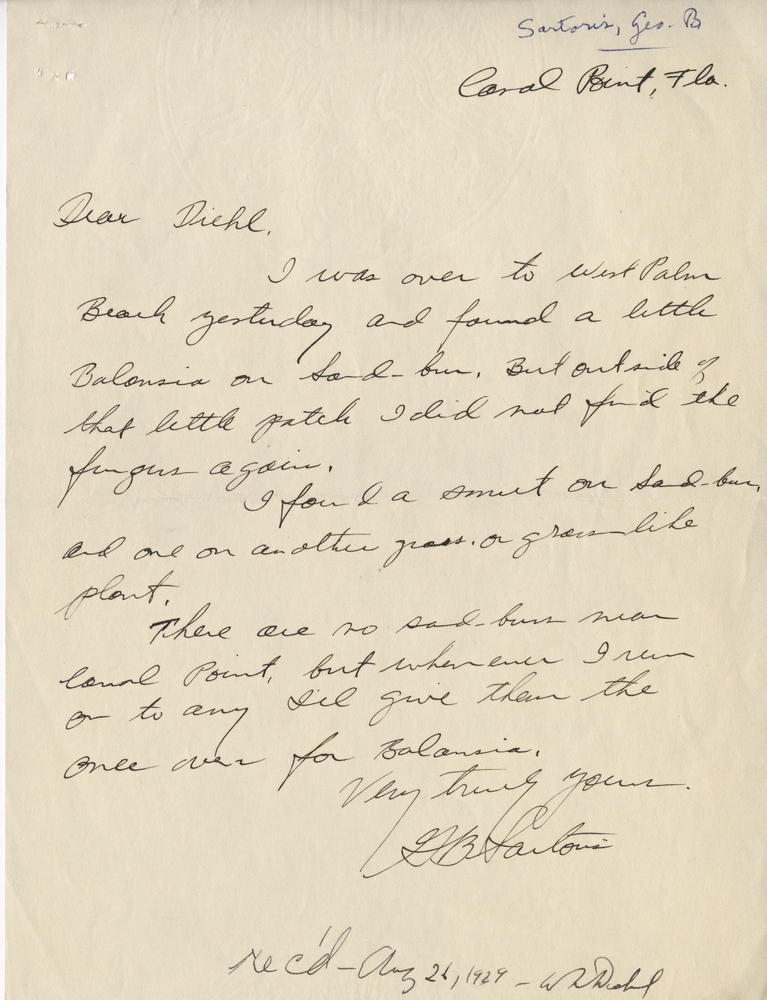 Sartoris, Geo. B
Canal Point, Fla.
Dear Diehl,
I was over to West Palm
Beach yesterday and found a little
Balansia on sand-bur. But outside of
that little patch I did not find the
fungus again.
I found a smut on sand-bur,
and one on another grass or grass-like
plant.
There are no sand-burs near
Canal Point, but whenever I run
on to any I'll give them the
once over for Balansia.
Very truly yours.
GB Sartoris
Rec'd - Aug 26, 1929 - WWDiehl